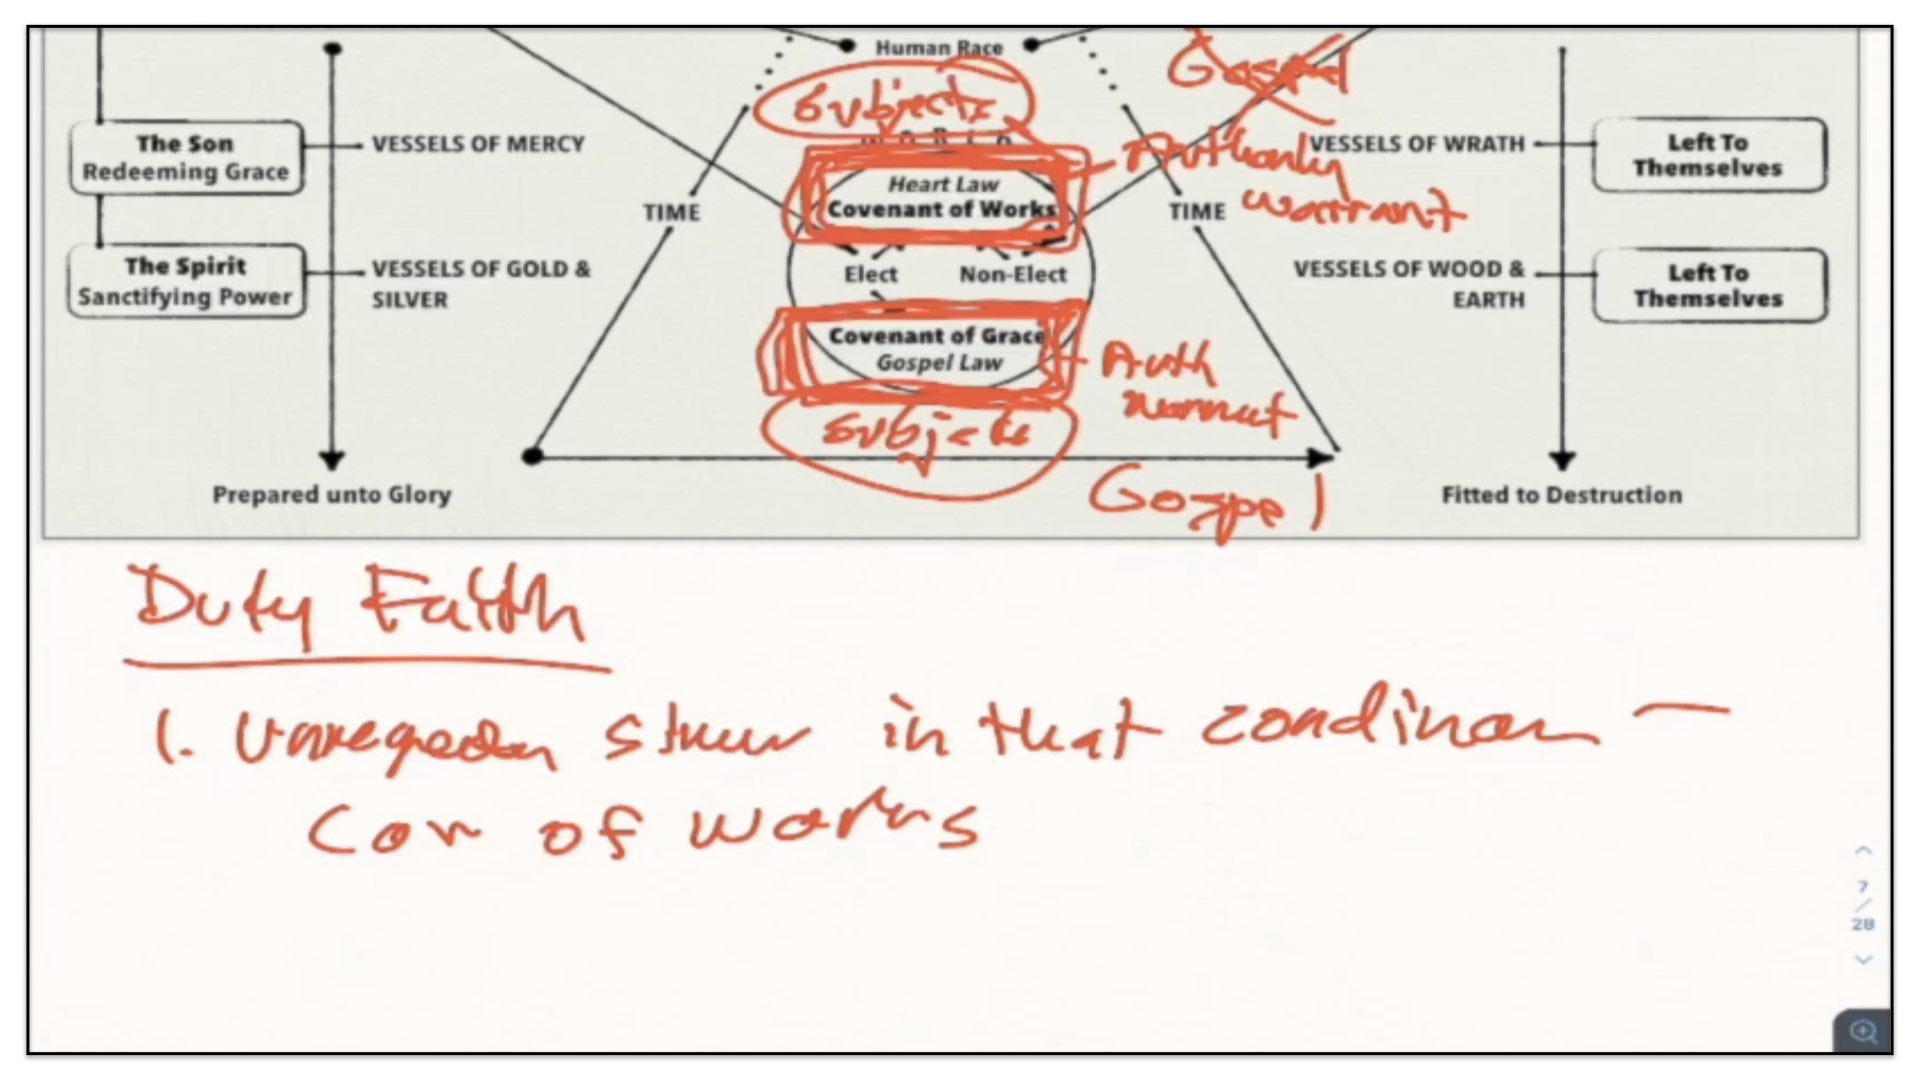 Human Race
Gospel
Subjects
WORLD
The Son
Redeeming Grace
VESSELS OF MERCY
Authority
warrant
VESSELS OF WRATH
Left To
Themselves
Heart Law
Covenant of Works
TIME
TIME
The Spirit
Sanctifying Power
VESSELS OF GOLD &
SILVER
Elect
Non-Elect
VESSELS OF WOOD &
EARTH
Left To
Themselves
Covenant of Grace
Gospel Law
Auth
Subjects
Prepared unto Glory
Gospel
Fitted to Destruction
Duty Faith
1. in that
of works
7
/
28